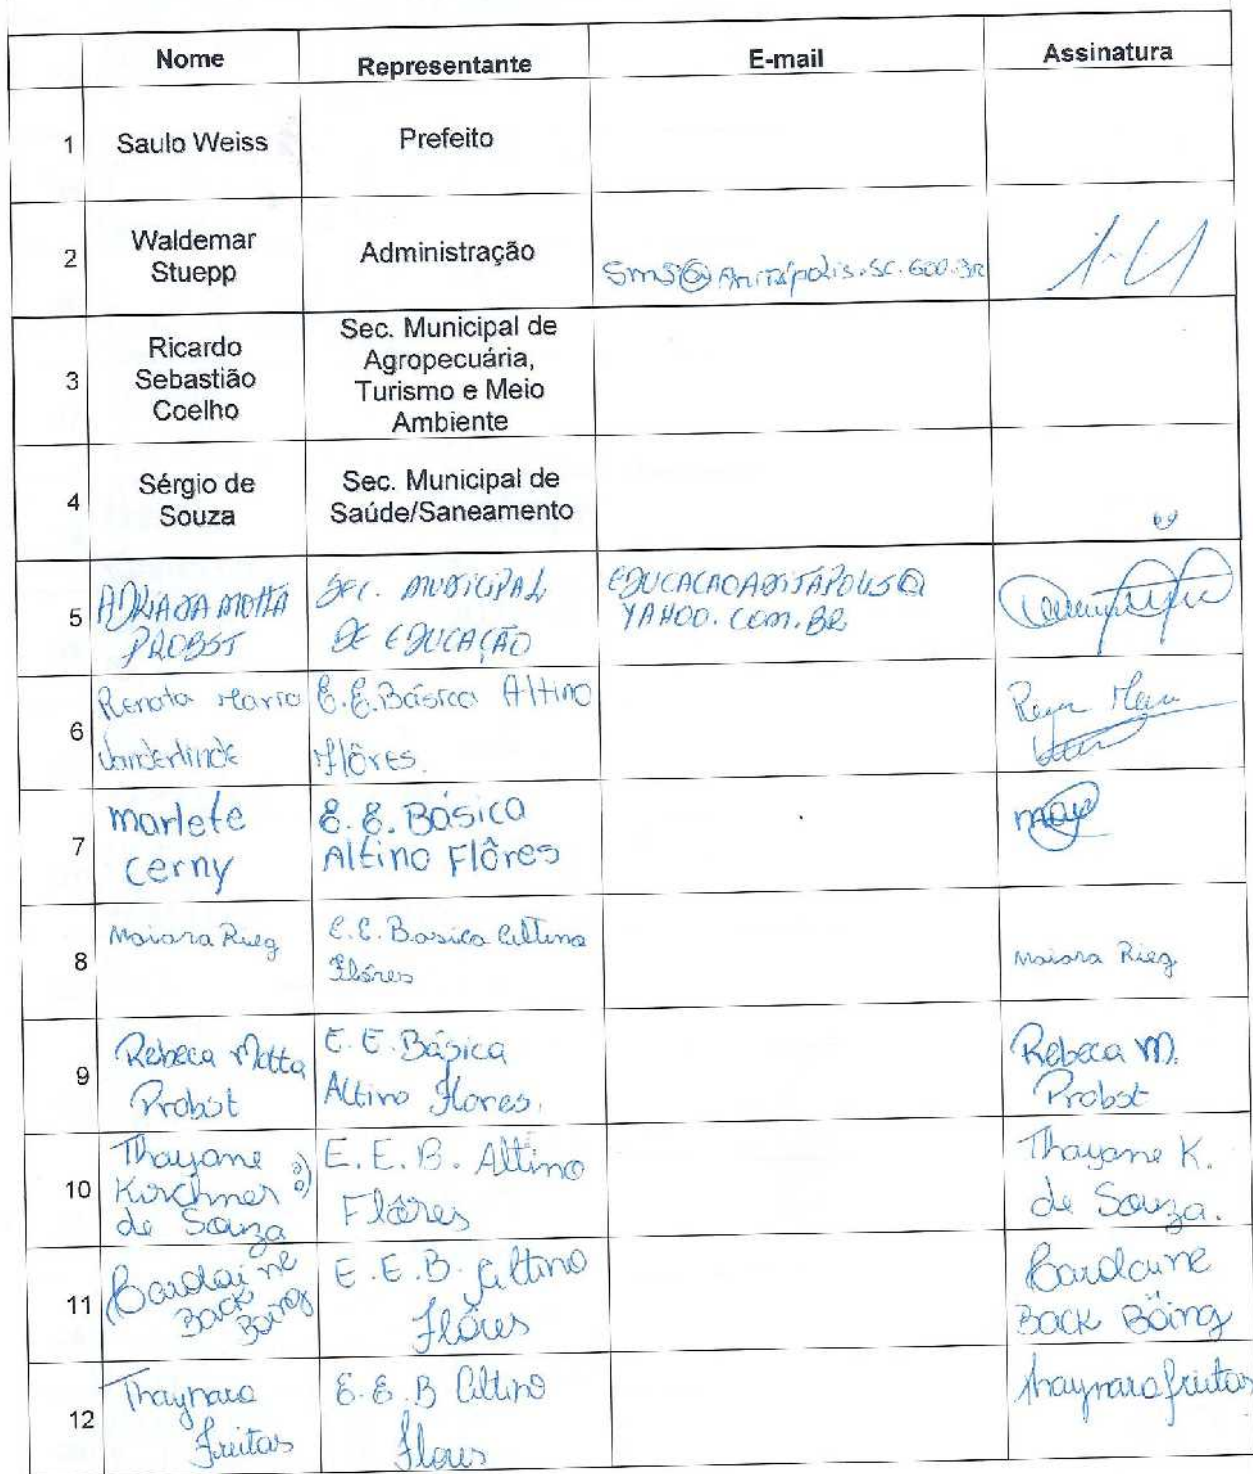 Nome Representante E-mail Assinatura
1 Saulo Weiss Prefeito
2 Waldemar
Stuepp
Administração
sms@Anitápolis.sc.gov.br
3 Ricardo
Sebastião
Coelho
Sec. Municipal de
Agropecuária,
Turismo e Meio
Ambiente
4 Sérgio de
Souza
Sec. Municipal de
Saúde/Saneamento
5 ADRIANA MOTTA
PROBST
SEC. MUNICIPAL
DE EDUCAÇÃO
EDUCACAOANITAPOLIS@
YAHOO.COM.BR
6 Renata Maria
Vanderlinde
E.E.Básica Altino
Flôres.
7 Marlete
Cerny
E.E. Básica
Altino Flôres
8 Maiara Rieg
E.E. Basica Altino
Flôres
Maiara Rieg
9 Rebeca Motta
Probst
E.E. Básica
Altino Flores.
Rebeca M.
Probst
10 Thayane
Kirchner
de Souza
E.E.B. Altino
Flôres
Thayane K.
de Souza.
11
Back
Böing
E.E.B. Altino
Flôres
Back Böing
12 Thaynara
Freitas
E.E.B Altino
Flores
Thaynara freitas